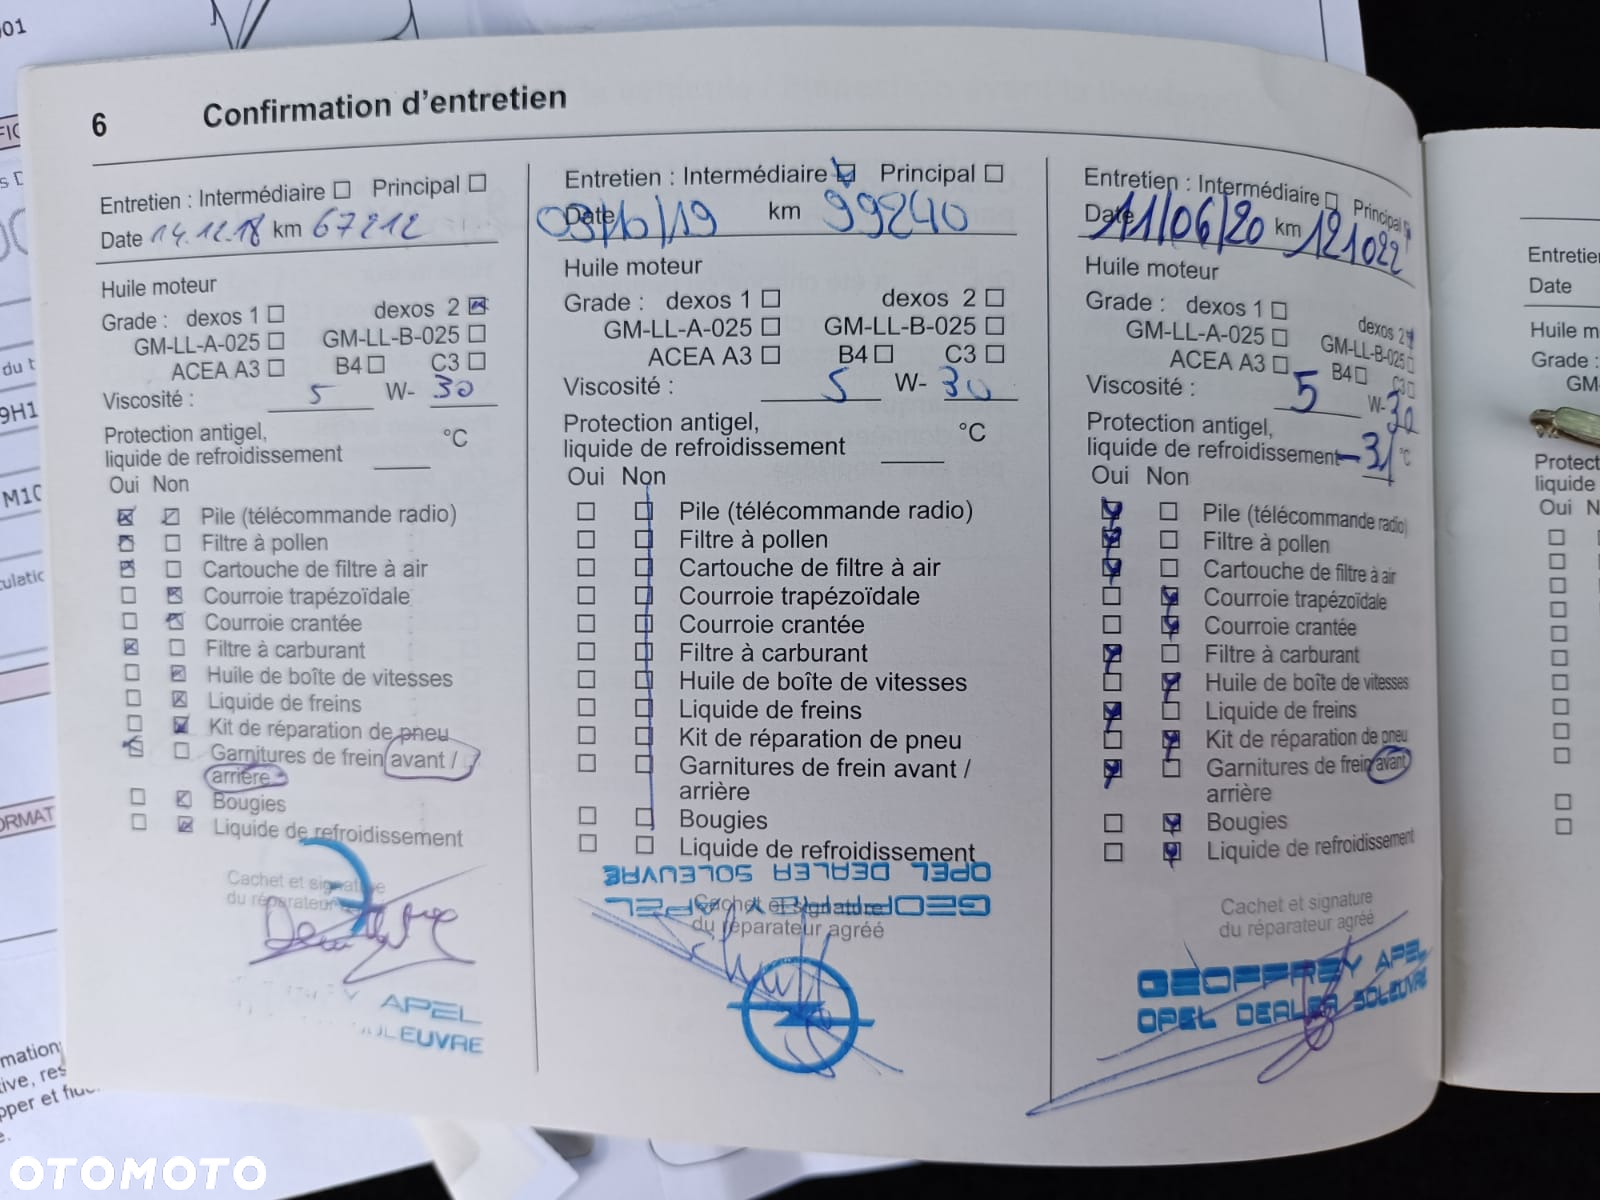 6 Confirmation d'entretien
Entretien : Intermédiaire Principal
Date 14.12.18 km 67212
Huile moteur
Grade : dexos 1 dexos 2
GM-LL-A-025 GM-LL-B-025
ACEA A3 B4 C3
Viscosité : 5 W- 30
Protection antigel,
liquide de refroidissement °C
Oui Non
Pile (télécommande radio)
Filtre à pollen
Cartouche de filtre à air
Courroie trapézoïdale
Courroie crantée
Filtre à carburant
Huile de boîte de vitesses
Liquide de freins
Kit de réparation de pneu
Garnitures de frein avant /
arrière
Bougies
Liquide de refroidissement
Cachet et signature
du réparateur
APEL
LEUVRE
Entretien : Intermédiaire Principal
Date 03/10/19 km 99240
Huile moteur
Grade : dexos 1 dexos 2
GM-LL-A-025 GM-LL-B-025
ACEA A3 B4 C3
Viscosité : 5 W- 30
Protection antigel,
liquide de refroidissement °C
Oui Non
Pile (télécommande radio)
Filtre à pollen
Cartouche de filtre à air
Courroie trapézoïdale
Courroie crantée
Filtre à carburant
Huile de boîte de vitesses
Liquide de freins
Kit de réparation de pneu
Garnitures de frein avant /
arrière
Bougies
Liquide de refroidissement
OPEL DEALER SOLEUVRE
GEOFFREY APEL
Cachet et signature
du réparateur agréé
Entretien : Intermédiaire Principal
Date 11/06/20 km 121022
Huile moteur
Grade : dexos 1 dexos 2
GM-LL-A-025 GM-LL-B-025
ACEA A3 B4 C3
Viscosité : 5 W- 30
Protection antigel,
liquide de refroidissement -31 °C
Oui Non
Pile (télécommande radio)
Filtre à pollen
Cartouche de filtre à air
Courroie trapézoïdale
Courroie crantée
Filtre à carburant
Huile de boîte de vitesses
Liquide de freins
Kit de réparation de pneu
Garnitures de frein avant
arrière
Bougies
Liquide de refroidissement
Cachet et signature
du réparateur agréé
GEOFFREY APEL
OPEL DEALER SOLEUVRE
Entretie
Date
Huile m
Grade :
GM-
Protect
liquide
Oui N
001
du t
9H1
M10
culatic
ORMAT
mation
tive, res
pper et
OTOMOTO